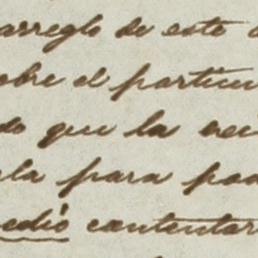 arreglo de este
obre el particu
do que la
la para pod
edió contentar